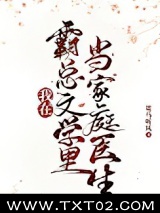 我在
霸总文学里
当家庭医生
WWW.TXT02.COM